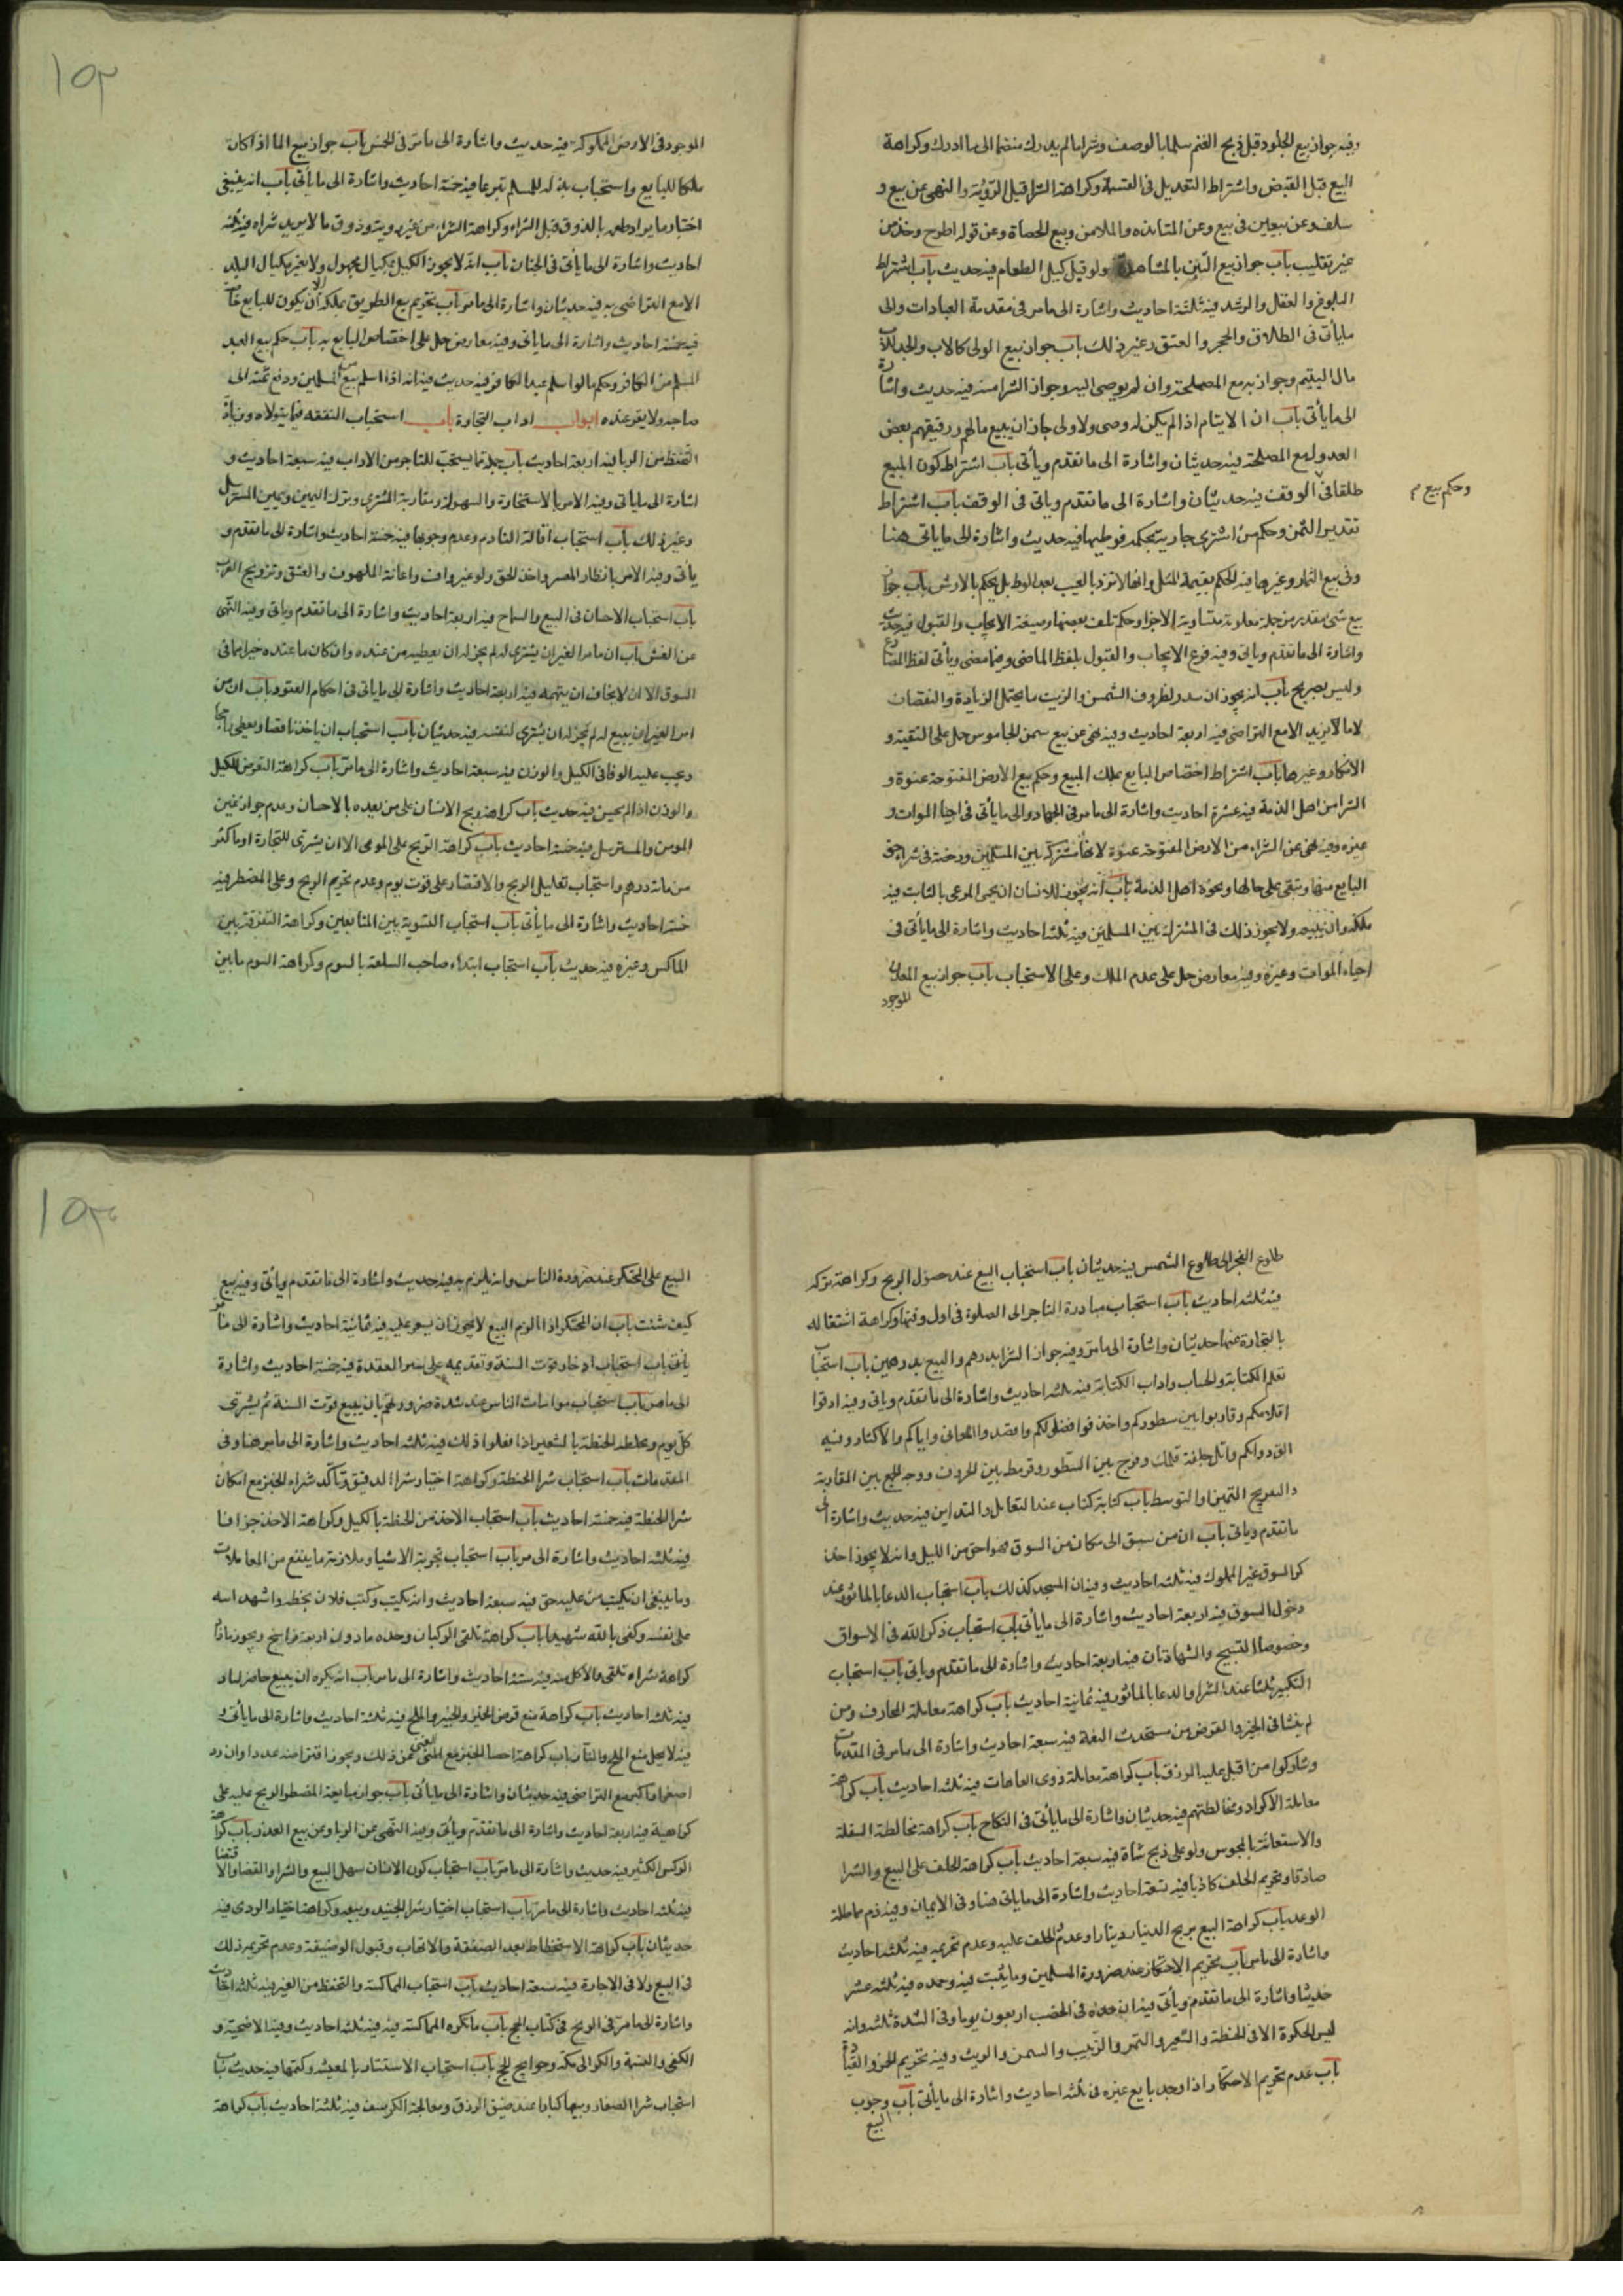 وفيه جواز بيع الجلود قبل ذبح الغنم سلما بالوصف وشرا ما لم يدرك منضما الى ما ادرك وكراهة
البيع قبل القبض واشتراط التعديل فى القسمة وكراهة الشرا قبل الرؤية والنهى عن بيع و
سلف وعن بيعين فى بيع وعن المنابذه والملامس وبيع الحصاة وعن قوله اطرح وخذ من
غير تقليب باب جواز بيع التبن بالمشاهدة ولو قبل كيل الطعام فيه حديث باب اشتراط
البلوغ والعقل والرشد فيه ثلثة احاديث واشارة الى ما مر فى مقدمة العبادات والى
ما يأتى فى الطلاق والحجر والعتق وغير ذلك باب جواز بيع الولى كالاب والجد للاب
مال اليتيم وجوازه مع المصلحة وان لم يوصى اليه وجواز الشرا منه فيه حديث واشارة
الى ما يأتى باب ان الايتام اذا لم يكن له وصى ولا ولى جاز ان يبيع مالهم ورقيقهم بعض
العدول مع المصلحة فيه حديثان واشارة الى ما تقدم ويأتى باب اشتراط كون المبيع
طلقا فى الوقف فيه حديثان واشارة الى ما تقدم وياتى فى الوقف باب اشتراط
وحكم بيع م
تقدير الثمن وحكم من اشترى جارية بحكمه فوطيها فيه حديث واشارة الى ما ياتى هنا
وفى بيع الثمار وغيرها فيه الحكم بقيمة المثل وانها لا ترد بالعيب بعد الوطى بل يحكم بالارش باب جواز
بيع شى مقدر من جملة معلومة متساوية الاجزا وحكم تلف بعضها وصيغة الايجاب والقبول فيه حديث
واشارة الى ما تقدم وياتى وفيه فرع الايجاب والقبول بلفظ الماضى وفيما مضى ويأتى لفظ المضارع
وليس بصريح باب انه يجوز ان يندر لظروف السمن والزيت ما يحتمل الزيادة والنقصان
لا ما لا يزيد الا مع التراضى فيه اربعة احاديث وفيه نهى عن بيع سمن الجاموس حمل على التقية و
الانكار وغيرها باب اشتراط اختصاص البايع بملك المبيع وحكم بيع الارض المفتوحة عنوة و
الشرا من اهل الذمة فيه عشرة احاديث واشارة الى ما مر فى الجهاد والى ما يأتى فى احيا الموات و
غيره وفيه نهى عن الشراء من الارض المفتوحة عنوة لانها مشتركة بين المسلمين ورخصة فى شراء حق
البايع منها وتبقى على حالها ونحوه اهل الذمة باب انه يجوز للانسان ان يحمى المرعى بالنابت فيه
ملكه وان يبيعه ولا يجوز ذلك فى المشترك بين المسلمين فيه ثلثه احاديث واشارة الى ما يأتى فى
احياء الموات وغيره وفيه معارض حمل على عدم الملك وعلى الاستحباب باب جواز بيع المعدن
الموجود
١٥٢
الموجود فى الارض المملوكة فيه حديث واشارة الى ما مر فى الخمس باب جواز بيع الما اذا كان
ملكا للبايع واستحباب بذله للمسلم تبرعا فيه خمسة احاديث واشارة الى ما يأتى باب انه ينبغى
اختبار ما يراد طعمه بالذوق قبل الشراء وكراهة الشراء من غير رويته وذوق ما لا يريد شراه فيه ثلثه
احاديث واشارة الى ما يأتى فى الجنان باب انه لا يجوز الكيل بمكيال مجهول ولا بغير مكيال البلد
الا مع التراضى به فيه حديثان واشارة الى ما مر باب تحريم بيع الطريق بملكه الا ان يكون للبايع خاصة
فيه خمسة احاديث واشارة الى ما ياتى وفيه معارض حمل على اختصاص البايع به باب حكم بيع العبد
المسلم من الكافر وحكم ما لو اسلم عبد الكافر فيه حديث فيه انه اذا اسلم بيع من المسلمين ودفع ثمنه الى
صاحبه ولا يقر عنده ابواب اداب التجارة باب استحباب التفقه فيما يتولاه وزيادة
التحفظ من الربا فيه اربعة احاديث باب جملة مما يستحب للتاجر من الاداب فيه سبعة احاديث و
اشارة الى ما ياتى وفيه الامر بالاستخارة والسهولة ومقاربة المشترى وترك اليمين وغبن المسترسل
وغير ذلك باب استحباب اقالة النادم وعدم وجوبها فيه خمسة احاديث واشارة الى ما تقدم و
يأتى وفيه الامر بانظار المعسر واخذ الحق ولو غير واف واعانة الملهوف والعتق وتزويج العزب
باب استحباب الاحسان فى البيع والسماح فيه اربعة احاديث واشارة الى ما تقدم وياتى وفيه النهى
عن الغش باب ان ما مر الغير ان يشترى له لم يجز له ان يعطيه من عنده وان كان ما عنده خيرا مما فى
السوق الا ان لا يخاف ان يتهمه فيه اربعة احاديث واشارة الى ما ياتى فى احكام العقود باب ان من
امر الغير ان يبيع له لم يجز له ان يشترى لنفسه فيه حديثان باب استحباب ان ياخذ ناقصا ويعطى راجحا
ويجب عليه الوفا فى الكيل والوزن فيه سبعة احاديث واشارة الى ما مر باب كراهة التعرض للكيل
والوزن اذا لم يحسن فيه حديث باب كراهة ربح الانسان على من يعده بالاحسان وعدم جواز غبن
المومن والمسترسل فيه خمسة احاديث باب كراهة الربح على المومن الا ان يشترى للتجارة او باكثر
من مائة درهم واستحباب تقليل الربح والاقتصار على قوت يوم وعدم تحريم الربح وعلى المضطر فيه
خمسة احاديث واشارة الى ما يأتى باب استحباب التسوية بين المتابعين وكراهة التفرقة بين
المماكس وغيره فيه حديث باب استحباب ابتداء صاحب السلعة بالسوم وكراهة السوم ما بين
طلوع الفجر الى طلوع الشمس فيه حديثان باب استحباب البيع عند حصول الربح وكراهة تركه
فيه ثلثه احاديث باب استحباب مبادرة التاجر الى الصلوة فى اول وقتها وكراهة اشتغاله
بالتجارة عنها حديثان واشارة الى ما مر وفيه جواز الشرا بدرهم والبيع بدرهمين باب استحباب
تعلم الكتابة والحساب واداب الكتابة فيه ثلثه احاديث واشارة الى ما تقدم وياتى وفيه ادقوا
اقلامكم وقاربوا بين سطوركم واحذفوا فضولكم واقصدوا المعانى واياكم والاكثار وفيه
الق دواتكم واطل جلفة قلمك وفرج بين السطور وقرمط بين الحروف ووجه الجمع بين المقاربة
والتفريج التخيير او التوسط باب كتابة كتاب عند التعامل والتداين فيه حديث واشارة الى
ما تقدم وياتى باب ان من سبق الى مكان من السوق فهو احق من الليل وانه لا يجوز اخذ
كرا السوق غير المملوك فيه ثلثه احاديث وفيه ان المسجد كذلك باب استحباب الدعا بالماثور عند
دخول السوق فيه اربعة احاديث واشارة الى ما يأتى باب استحباب ذكر الله فى الاسواق
وخصوصا التسبيح والشهادتان فيه اربعة احاديث واشارة الى ما تقدم وياتى باب استحباب
التكبير ثلثا عند الشرا والدعا بالماثور فيه ثمانية احاديث باب كراهة معاملة المحارف ومن
لم ينشا فى الخير والقرض من مستحدث النعمة فيه سبعة احاديث واشارة الى ما مر فى المقدمات
وشاركوا من اقبل عليه الرزق باب كراهة معاملة ذوى العاهات فيه ثلثه احاديث باب كراهة
معاملة الاكراد ومخالطتهم فيه حديثان واشارة الى ما يأتى فى النكاح باب كراهة مخالطة السفلة
والاستعانة بالمجوس ولو على ذبح شاة فيه سبعة احاديث باب كراهة الحلف على البيع والشرا
صادقا وتحريم الحلف كاذبا فيه تسعة احاديث واشارة الى ما ياتى هنا وفى الايمان وفيه ذم مماطلة
الوعد باب كراهة البيع بربح الدينار دينارا وعدم الحلف عليه وعدم تحريمه فيه ثلثه احاديث
واشارة الى ما مر باب تحريم الاحتكار عند ضرورة المسلمين وما يثبت فيه وحده فيه ثلثه عشر
حديثا واشارة الى ما تقدم ويأتى فيه ان حده فى الخصب اربعون يوما وفى الشدة ثلثه وانه
ليس الحكرة الا فى الحنطة والشعير والتمر والزبيب والسمن والزيت وفيه تحريم الخمر والقيادة
باب عدم تحريم الاحتكار اذا وجد بايع غيره فى ثلثه احاديث واشارة الى ما يأتى باب وجوب
البيع
١٥٣
البيع على المحتكر عند ضرورة الناس وانه يلزم به فيه حديث واشارة الى ما تقدم ويأتى وفيه بيع
كيف شئت باب ان المحتكر اذا الزم البيع لا يجوز ان يسعر عليه فيه ثمانية احاديث واشارة الى ما مر
يأتى باب استحباب ادخار قوت السنة وتقديمه على شرا العقدة فيه خمسة احاديث واشارة
الى ما مر باب استحباب مواسات الناس عند شدة ضرورتهم بان يبيع قوت السنة ثم يشترى
كل يوم ويخلط الحنطة بالشعير اذا فعلوا ذلك فيه ثلثه احاديث واشارة الى ما مر هنا وفى
المقدمات باب استحباب شرا الحنطة وكراهة اختيار شرا الدقيق وتأكد شراء الخبز مع امكان
شرا الحنطة فيه خمسة احاديث باب استحباب الاخذ من الحنطة بالكيل وكراهة الاخذ جزافا
فيه ثلثه احاديث واشارة الى مر باب استحباب تجربة الاشيا وملازمة ما ينفع من المعاملات
وما ينبغى ان يكتب من عليه حق فيه سبعة احاديث وانه يكتب وكتب فلان بخطه واشهد الله
على نفسه وكفى بالله شهيدا باب كراهة تلقى الركبان وحده ما دون اربعة فراسخ ويجوز ما زاد
كراهة شراء ما تلقى والاكل منه فيه ستة احاديث واشارة الى ما مر باب انه يكره ان يبيع حاضر لباد
فيه ثلثه احاديث باب كراهة منع قرض الخبز والخمير والملح فيه ثلثة احاديث واشارة الى ما يأتى و
فيه لا يحل منع الملح والنار باب كراهة احصا الخبز مع الغنى عن ذلك ويجوز اقتراضه عددا وان رد
اصغر او اكبر مع التراضى فيه حديثان واشارة الى ما يأتى باب جواز مبايعة المضطر والربح عليه على
كراهية فيه اربعة احاديث واشارة الى ما تقدم ويأتى وفيه النهى عن الربا وعن بيع الغرر باب كراهة
الوكس الكثير فيه حديث واشارة الى ما مر باب استحباب كون الانسان سهل البيع والشرا والقضا والاقتضا
فيه ثلثه احاديث واشارة الى ما مر باب استحباب اختيار شرا الجيد وبيعه وكراهة اختيار الردى فيه
حديثان باب كراهة الاستحطاط بعد الصفقة والاتهاب وقبول الوضيعة وعدم تحريم ذلك
فى البيع ولا فى الاجارة فيه سبعة احاديث باب استحباب المماكسة والتحفظ من الغبن فيه ثلثه احاديث
واشارة الى ما مر فى الربح فى كتاب الحج باب ما تكره المماكسة فيه فيه ثلثه احاديث وفيه الاضحية و
الكفن والنسمة والكرا الى مكه وحوايج الحج باب استحباب الاستتار بالمعيشة وكتمها فيه حديث باب
استحباب شرا الصغار وبيعها كبارا عند ضيق الرزق ومعالجة الكرسف فيه ثلثة احاديث باب كراهة